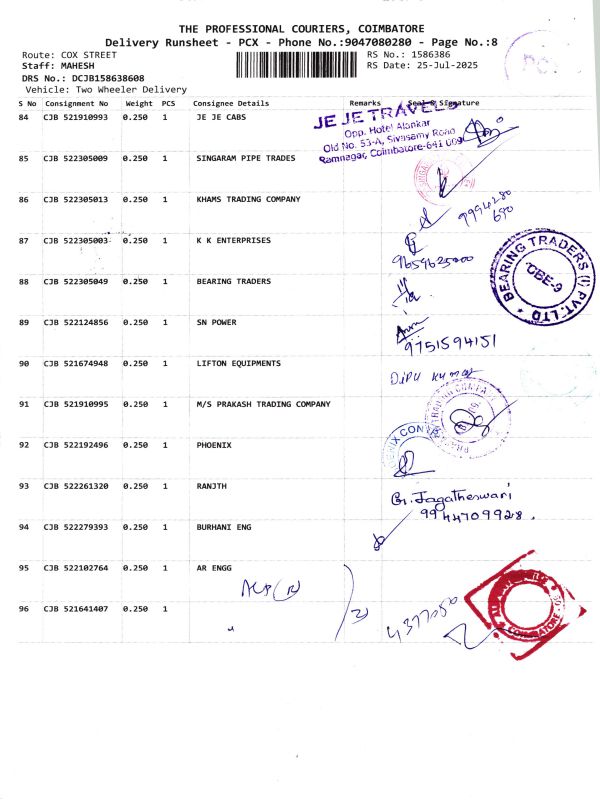 THE PROFESSIONAL COURIERS, COIMBATORE
Delivery Runsheet - PCX - Phone No.:9047080280 - Page No.:8
Route: COX STREET
RS No.: 1586386
Staff: MAHESH
RS Date: 25-Jul-2025
DRS No.: DCJB158638608
Vehicle: Two Wheeler Delivery
S No Consignment No Weight PCS Consignee Details Remarks Seal & Signature
84 CJB 521910993 0.250 1 JE JE CABS
JE JE TRAVELS
Opp. Hotel Alankar
Old No. 53-A, Sivasamy Road
Ramnagar, Coimbatore-641 009
85 CJB 522305009 0.250 1 SINGARAM PIPE TRADES
86 CJB 522305013 0.250 1 KHAMS TRADING COMPANY
9994280
680
87 CJB 522305003 0.250 1 K K ENTERPRISES
9659625000
88 CJB 522305049 0.250 1 BEARING TRADERS
BEARING TRADERS (I) PVT.LTD
CBE-9
89 CJB 522124856 0.250 1 SN POWER
9751594151
90 CJB 521674948 0.250 1 LIFTON EQUIPMENTS
DiPU Kumar
91 CJB 521910995 0.250 1 M/S PRAKASH TRADING COMPANY
92 CJB 522192496 0.250 1 PHOENIX
93 CJB 522261320 0.250 1 RANJTH
G. Jagatheswari
9944709928.
94 CJB 522279393 0.250 1 BURHANI ENG
95 CJB 522102764 0.250 1 AR ENGG
96 CJB 521641407 0.250 1
4377050
COIMBATORE